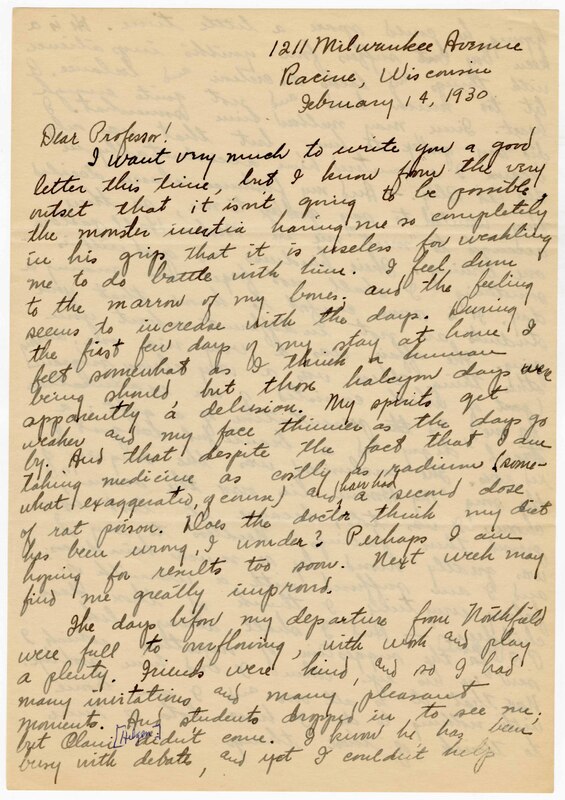 1211 Milwaukee Avenue
Racine, Wisconsin
February 14, 1930
Dear Professor!
I want very much to write you a good
letter this time, but I know from the very
outset that it isn't going to be possible,
the monster inertia having me so completely
in his grip that it is useless for weakling
me to do battle with him. I feel dumb
to the marrow of my bones. and the feeling
seems to increase with the days. During
the first few days of my stay at home I
felt somewhat as I think a human
being should but those halcyon days were
apparently a delusion. My spirits get
weaker and my face thinner as the days go
by. And that despite the fact that I am
taking medicine as costly as radium (some-
what exaggerated, of course) and have had a second dose
of rat poison. Does the doctor think my diet
has been wrong, I wonder? Perhaps I am
hoping for results too soon. Next week may
find me greatly improved.
The days before my departure from Northfield
were full to overflowing, with work and play
a plenty. Friends were kind, and so I had
many invitations and many pleasant
moments. And students dropped in, to see me,
but didn't come. I know he has been
busy with debate, and yet I couldn't help